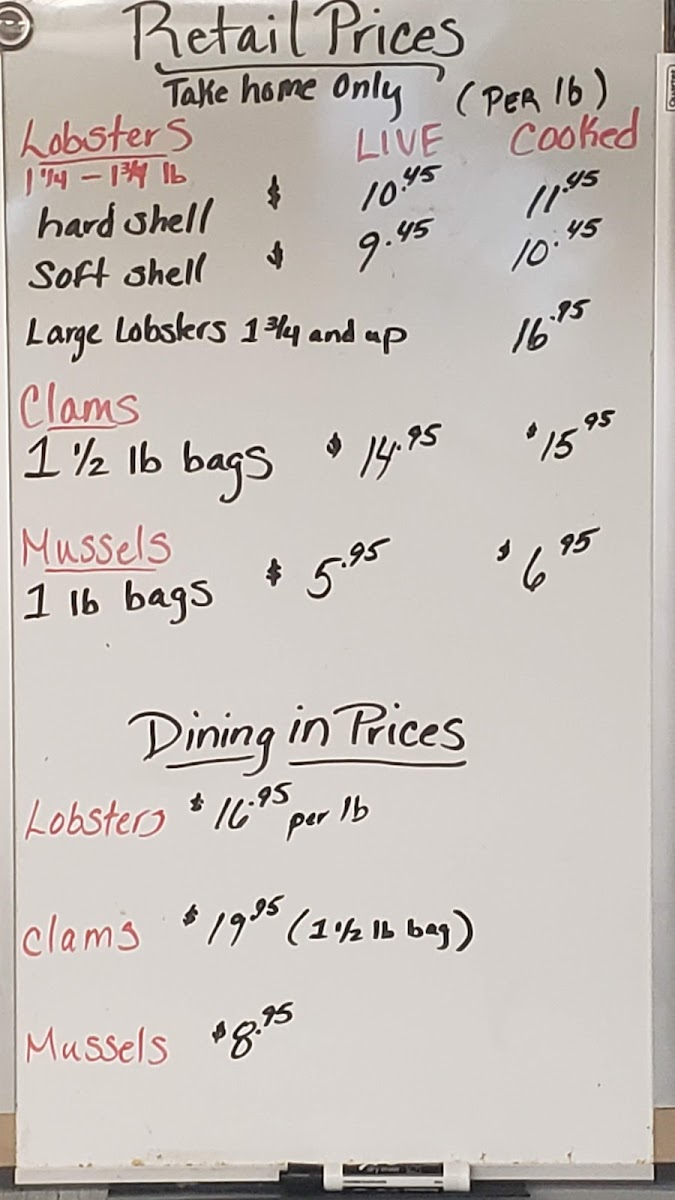 Retail Prices
Take home Only (PER lb)
Lobsters LIVE Cooked
1 1/4 - 1 3/4 lb
hard shell $ 10.45 11.45
Soft shell $ 9.45 10.45
Large Lobsters 1 3/4 and up 16.95
Clams
1 1/2 lb bags $ 14.95 $ 15 95
Mussels
1 lb bags $ 5.95 $ 6 95
Dining in Prices
Lobsters $ 16.95 per lb
Clams $ 19 95 (1 1/2 lb bag)
Mussels $ 8.95